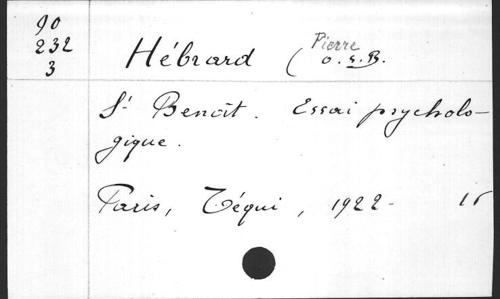 90
232
3
Hébrard (Pierre
O.S.B.
St Benoît. Essai psycholo-
gique.
Paris, Téqui, 1922- 16